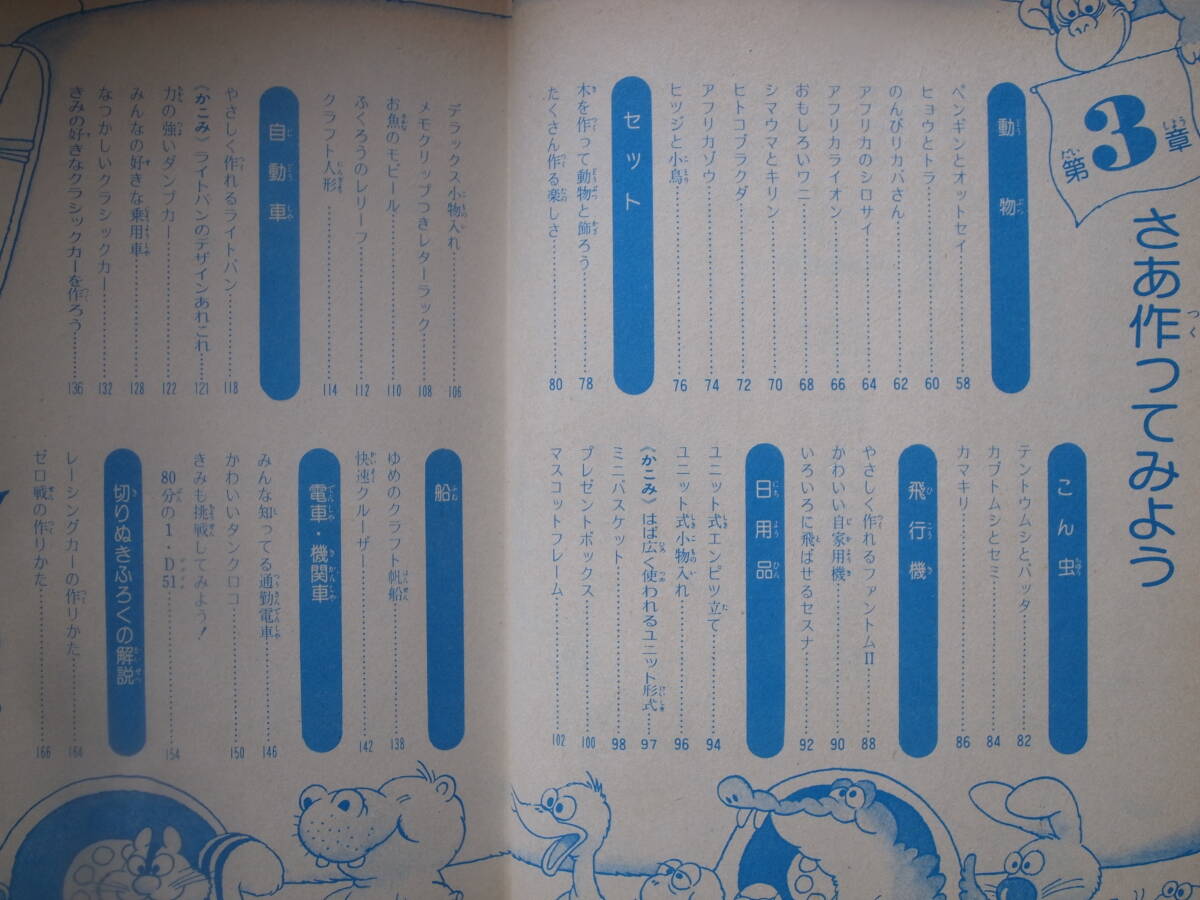 第3章
さあ作ってみよう
動物
ペンギンとオットセイ……58
ヒョウとトラ……60
のんびりカバさん……62
アフリカのシロサイ……64
アフリカライオン……66
おもしろいワニ……68
シマウマとキリン……70
ヒトコブラクダ……72
アフリカゾウ……74
ヒツジと小鳥……76
セット
木を作って動物と飾ろう……78
たくさん作る楽しさ……80
こん虫
テントウムシとバッタ……82
カブトムシとセミ……84
カマキリ……86
飛行機
やさしく作れるファントムII……88
かわいい自家用機……90
いろいろに飛ばせるセスナ……92
日用品
ユニット式エンピツ立て……94
ユニット式小物入れ……96
《かこみ》はば広く使われるユニット形式……97
ミニバスケット……98
プレゼントボックス……100
マスコットフレーム……102
デラックス小物入れ……106
メモクリップつきレターラック……108
お魚のモビール……110
ふくろうのレリーフ……112
クラフト人形……114
自動車
やさしく作れるライトバン……118
《かこみ》ライトバンのデザインあれこれ……121
力の強いダンプカー……122
みんなの好きな乗用車……128
なつかしいクラシックカー……132
きみの好きなクラシックカーを作ろう……136
船
ゆめのクラフト帆船……138
快速クルーザー……142
電車・機関車
みんな知ってる通勤電車……146
かわいいタンクロコ……150
きみも挑戦してみよう!
80分の1・D51……154
切りぬきふろくの解説
レーシングカーの作りかた……164
ゼロ戦の作りかた……166